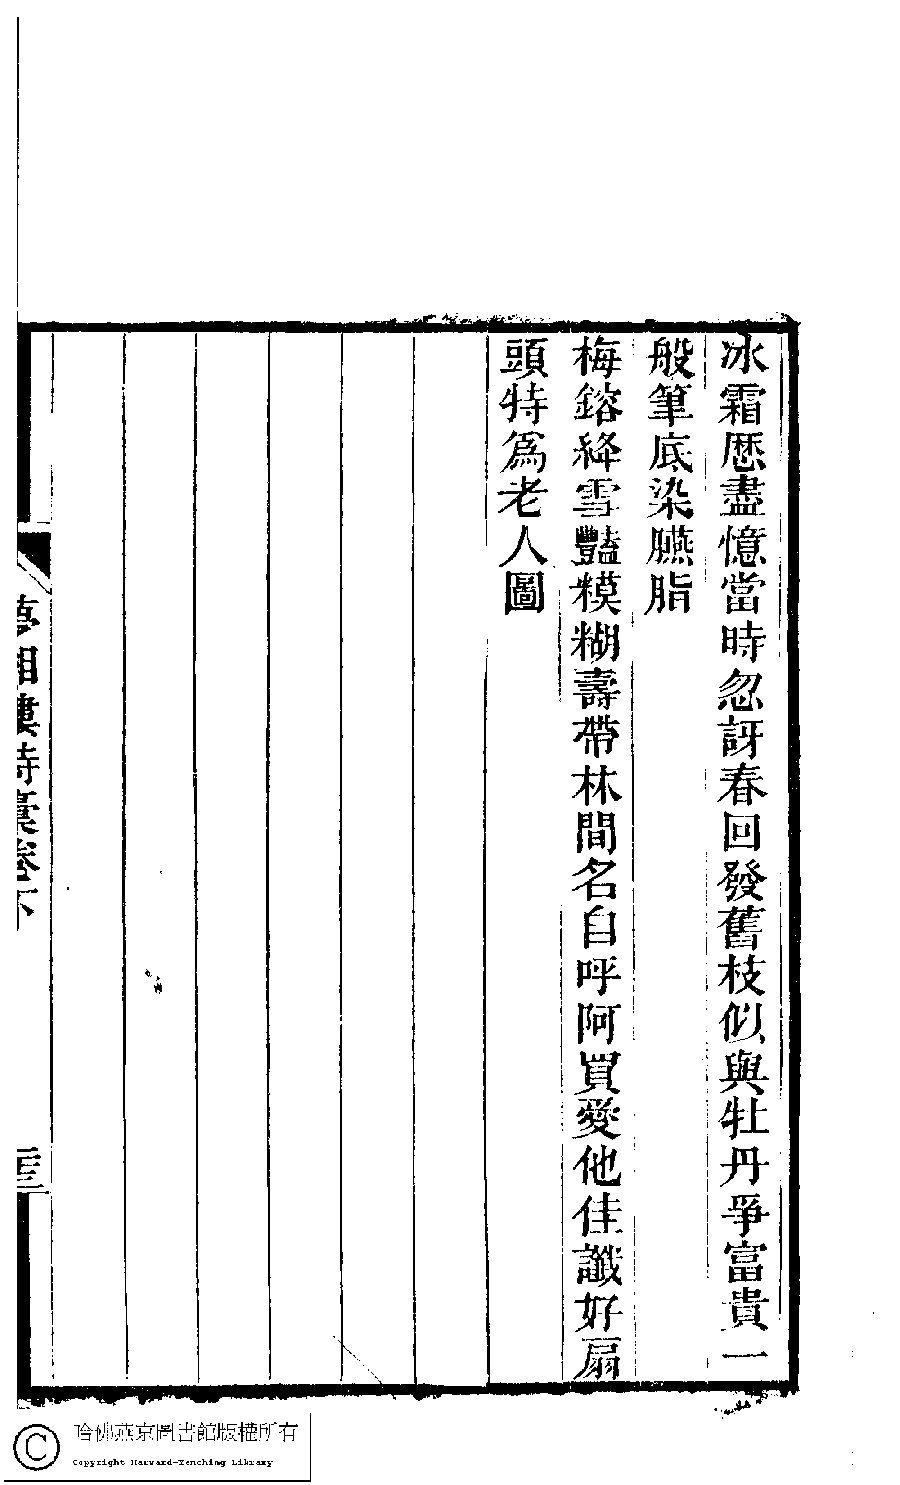 冰霜歴盡憶當時忽訝春回發舊枝似與牡丹爭富貴一
般筆底染臙脂
梅鎔絳雪豔糢糊壽帶林間名自呼阿買愛他佳讖好扇
頭特爲老人圖
夢湘樓詩藁卷下
哈佛燕京圖書館版權所有
Copyright Harvard-Yenching Library